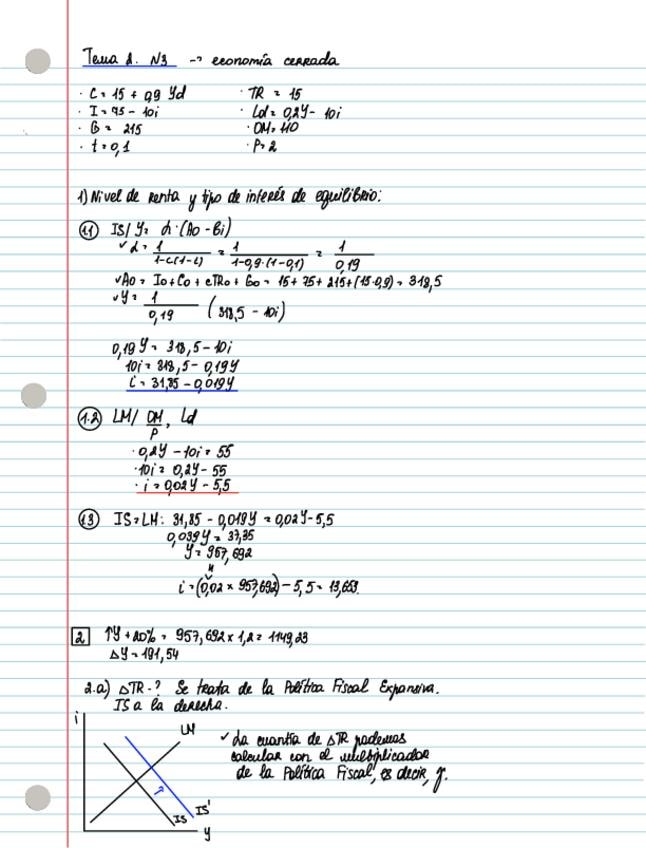 Tema 2. N3 -> economía cerrada
· C = 15 + 0,9 Yd · TR = 15
· I = 75 - 10i · Ld = 0,2Y - 10i
· G = 215 · OM = 110
· t = 0,1 · P = 2
1) Nivel de renta y tipo de interés de equilibrio:
1.1 IS/ Y = α·(Ao - bi)
✓ α = 1/(1-c(1-t)) = 1/(1-0,9·(1-0,1)) = 1/0,19
✓ Ao = Io + Co + cTRo + Go = 15 + 75 + 215 + (15·0,9) = 318,5
✓ Y = 1/0,19 (318,5 - 10i)
0,19Y = 318,5 - 10i
10i = 318,5 - 0,19Y
i = 31,85 - 0,019Y
1.2 LM/ OM/P, Ld
· 0,2Y - 10i = 55
· 10i = 0,2Y - 55
· i = 0,02Y - 5,5
1.3 IS = LM: 31,85 - 0,019Y = 0,02Y - 5,5
0,039Y = 37,35
Y = 957,692
i = (0,02 x 957,692) - 5,5 = 13,653.
2 ↑Y + 20% = 957,692 x 1,2 = 1149,23
ΔY = 191,54
2.a) ΔTR -? Se trata de la Política Fiscal Expansiva.
IS a la derecha.
i
LM
✓ La cuantía de ΔTR podemos
calcular con el multiplicador
de la Política Fiscal, es decir, γ.
IS IS'
Y